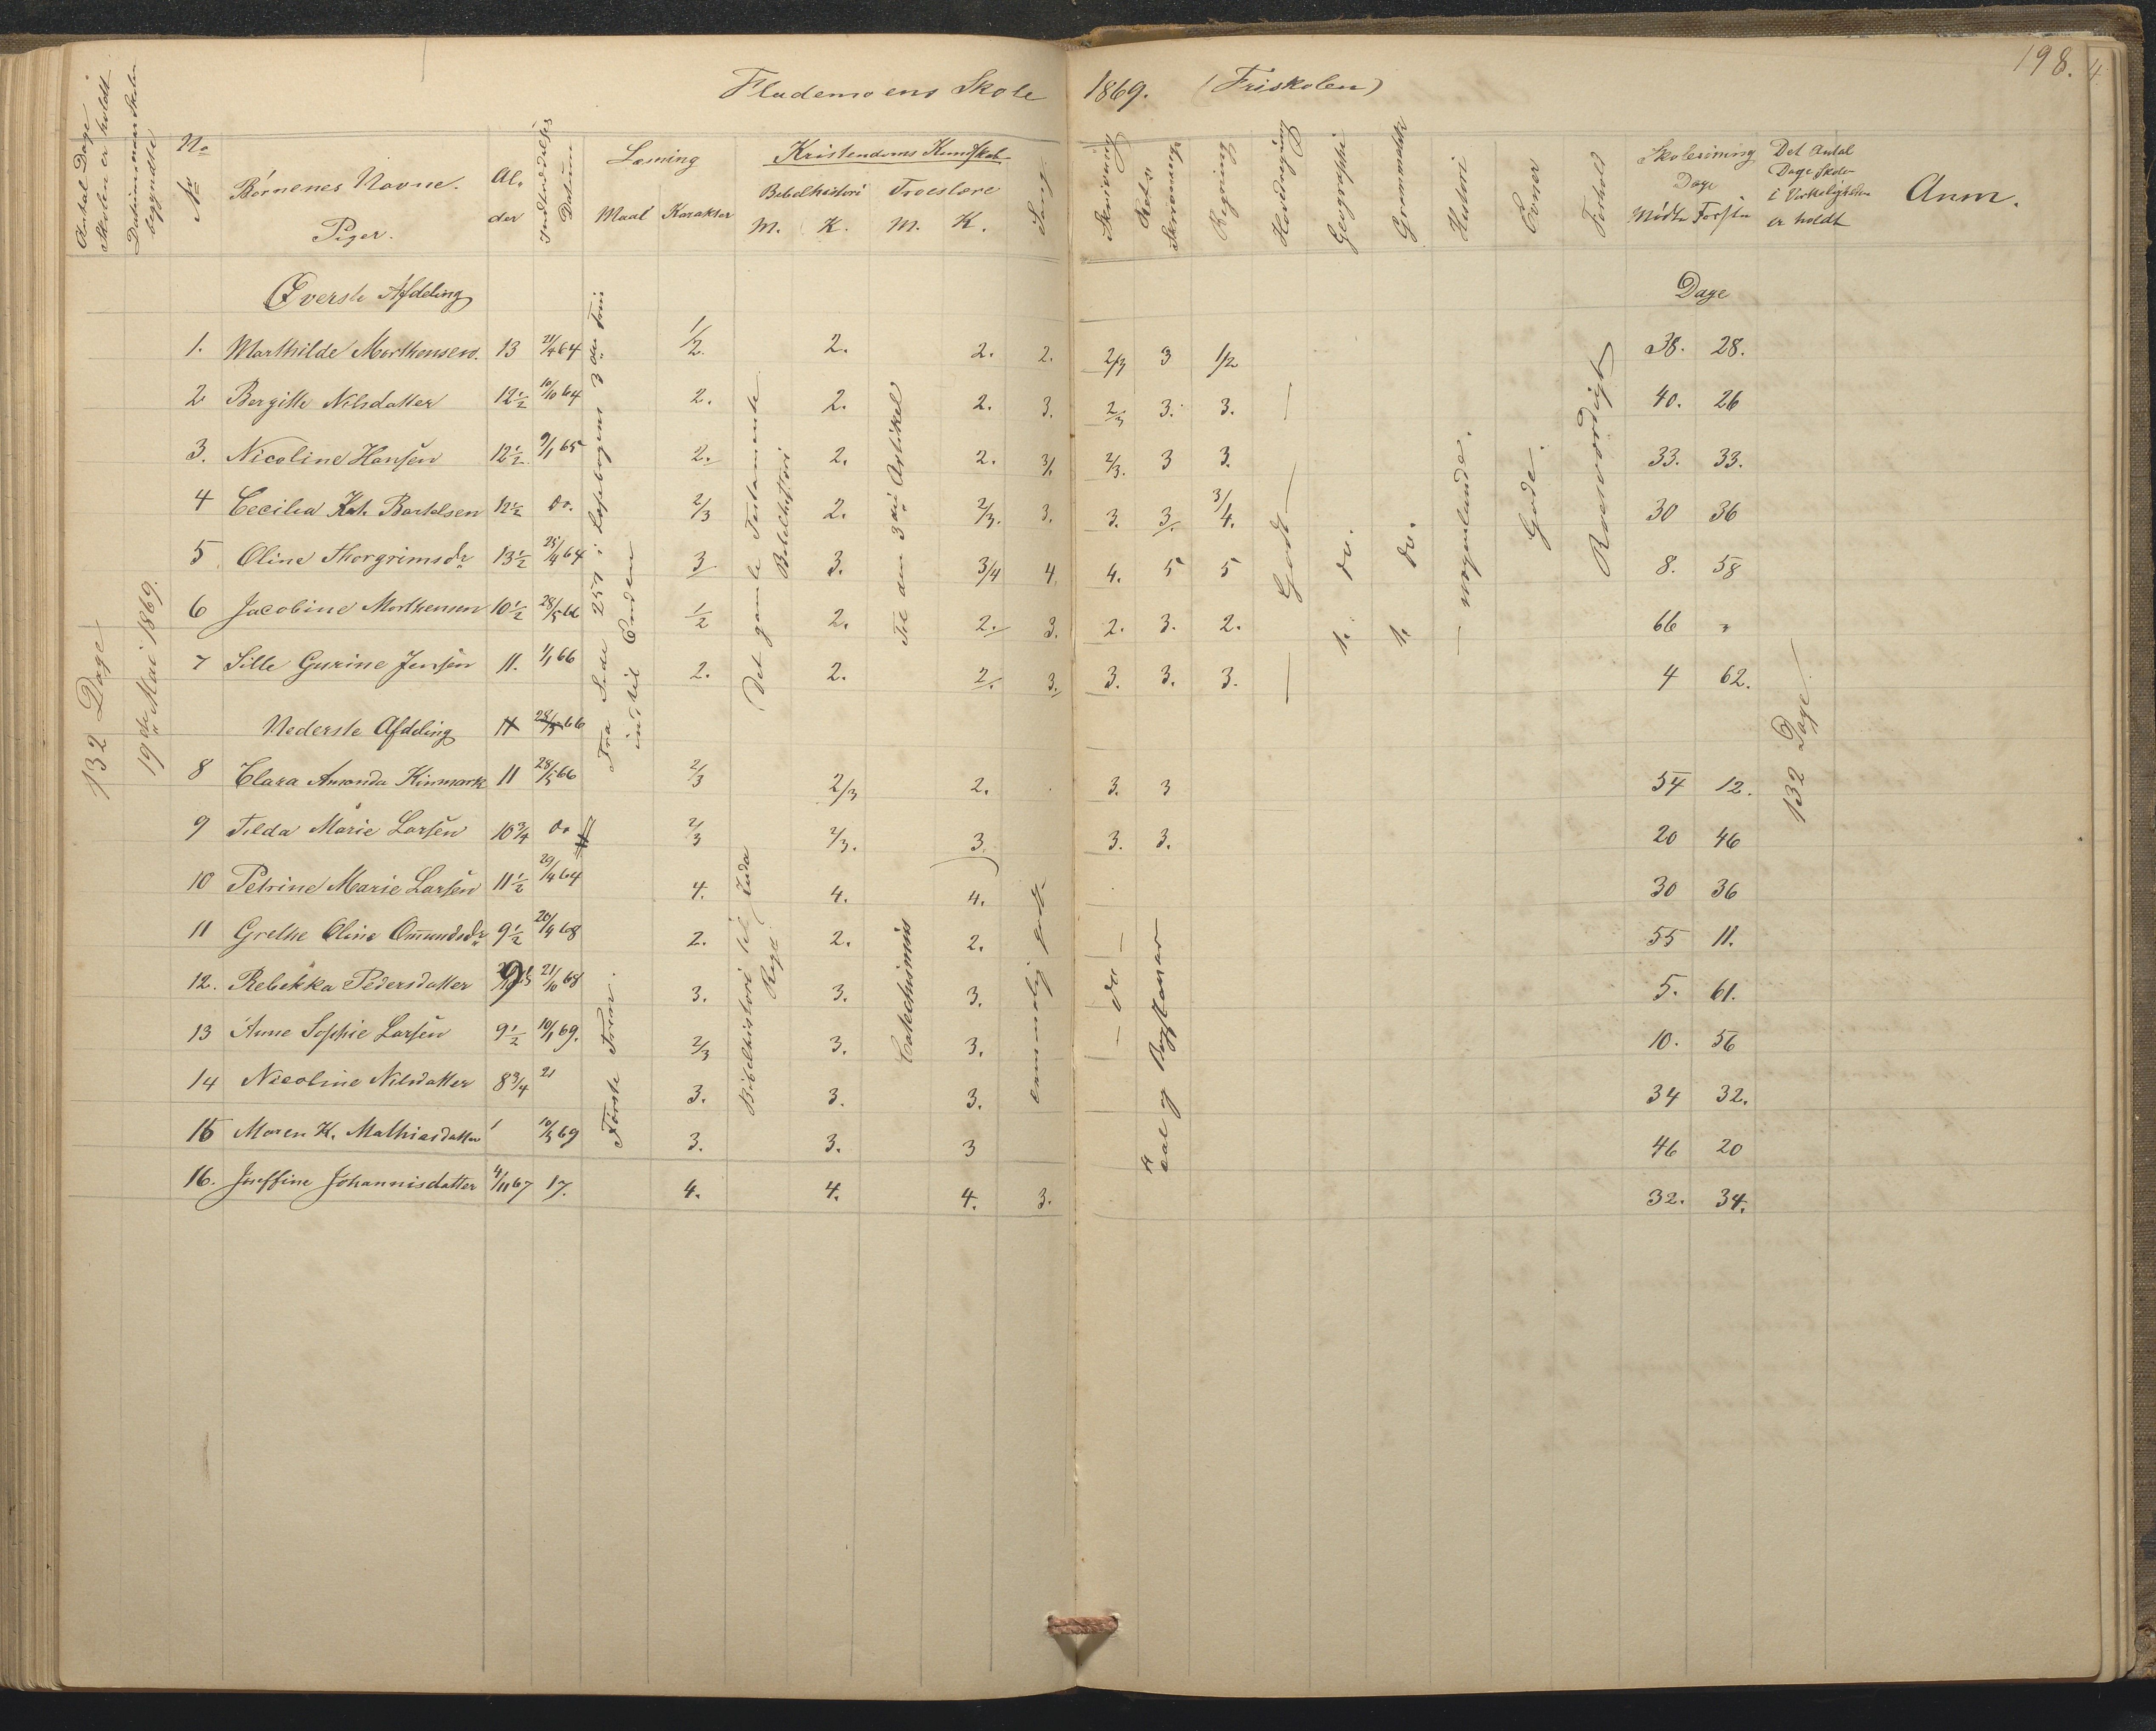 198.
Flademoens Skole 1869. (Friskolen)
Antal Dage Skolen er holdt
Datum naar Skolen begyndte
No
No
Børnenes Navne.
Piger.
Al. der
Indtrædelses Datum
Læsning
Maal Karakter
Kristendoms Kundskab
Bibelhistori Troeslære
M. K. M. K.
Sang
Skrivning
Rets Skrivning
Regning
Geographi
Grammatik
Historie
Evner
Forhold
Skolesøgning
Dage
Mødte Forsømte
Det Antal Dage Skolen i Virkeligheden er holdt
Anm.
132 Dage
19de Mai 1869.
Øverste Afdeling
Dage
1. Marthilde Morthensen. 13 21/4 64 1/2. 2. 2. 2. 2/3 3 1/2 38. 28.
2 Bergitte Nilsdatter 12½ 10/10 64 2. 2. 2. 3. 2/3 3. 3. 40. 26
3. Nicoline Hansen 12½ 9/1 65 2. 2. 2. 3/. 2/3. 3 3. 33. 33.
4 Cecilia Kat. Bartelsen 12½ do. 2/3 2. 2/3. 3. 3. 3. 3/4. 30 36
5 Oline Thorgrimsdr 13½ 25/4 64 3 3. 3/4 4 4. 5 5 8. 58
6 Jacobine Morthensen 10½ 28/5 66 1/2 2. 2. 3. 2. 3. 2. 66 "
7 Sille Gurine Jensen 11. 1/1 66 2. 2. 2. 3. 3. 3. 3. 4 62.
Fra Side 257 i Læsebogens 3die Trin indtil Enden
Det gamle Testamente Bibelhistori
Til den 3die Artikel
Godt
do.
do.
nogenlunde.
Gode.
Roesværdigt
132 Dage
Nederste Afdeling 11 28/5 66
8 Clara Amanda Kinmark 11 28/5 66 2/3 2/3 2. 3. 3 54 12.
9 Tilda Marie Larsen 10¾ do 2/3 2/3. 3. 3. 3. 20 46
10 Petrine Marie Larsen 11½ 29/4 64 4. 4. 4. 30 36
11 Grethe Oline Omundsdr 9½ 20/4 68 2. 2. 2. 55 11.
12. Rebekka Pedersdatter 9 21/10 68 3. 3. 3. 5. 61.
13 Anne Sophie Larsen 9½ 10/1 69. 2/3 3. 3. 10. 56
14 Nicoline Nilsdatter 8¾ 21 3. 3. 3. 34 32.
15 Maren K. Mathiasdatter 1 10/5 69 3. 3. 3 46 20
16. Josffine Johannisdatter 4/11 67 17. 4. 4. 4. 3. 32. 34.
Første Trin.
Bibelhistori til Juda Rige
Catechismus
temmelig godt.
do
Tal og Bogstaver